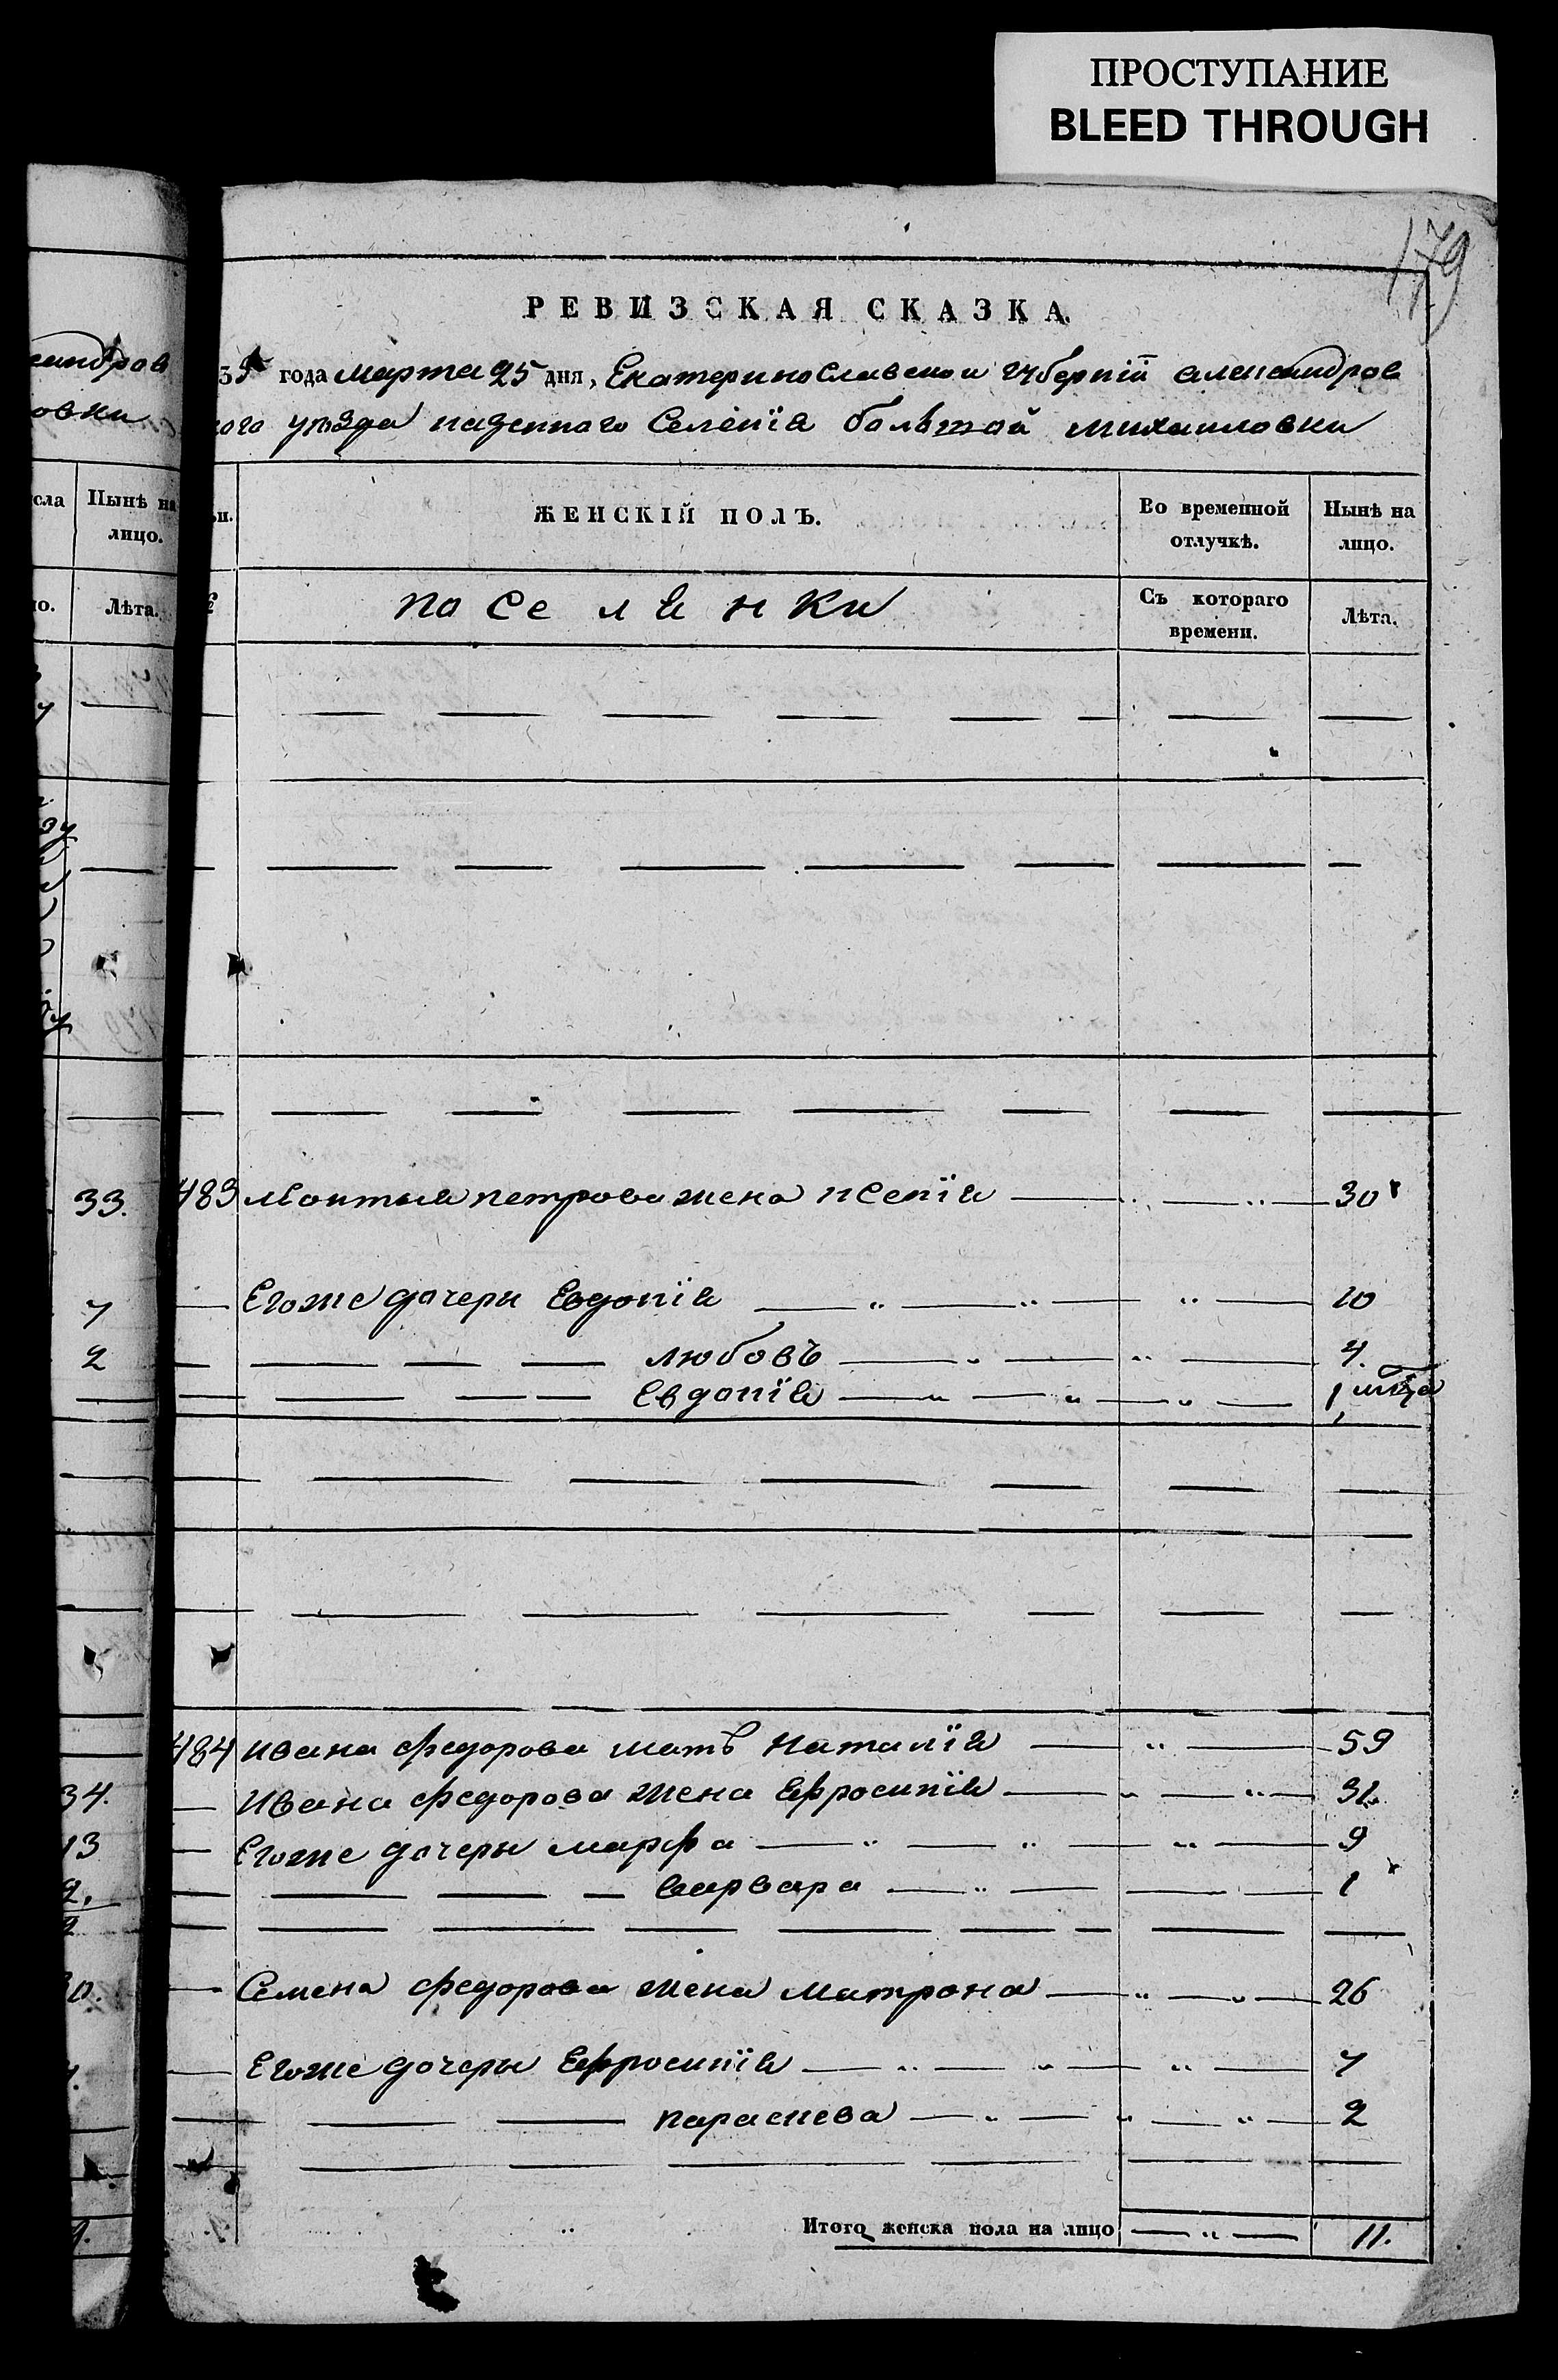 ПРОСТУПАНИЕ
BLEED THROUGH
179
РЕВИЗСКАЯ СКАЗКА.
года марта 25 дня, Екатеринославской губерніи александров
ского уѣзда казенного Селенія большой михаиловки
ЖЕНСКІЙ ПОЛЪ.
Во временной отлучкѣ.
Нынѣ на лицо.
поселянки
Съ котораго времени.
Лѣта.
483 петрова жена ксенія 30
Егоже дочери Евдокія 10
любовъ 4.
Евдокія 1 мца
484 ивана федорова мать наталія 59
Ивана федорова жена Ефросинія 31
Егоже дочери марфа 9
варвара 1
Семена федорова жена матрона 26
Егоже дочеры Ефросинія 7
параскева 2
Итого женска пола на лицо 11.
сандров
овки
сла
Нынѣ на
лицо.
Лѣта.
33.
7
2
34.
13